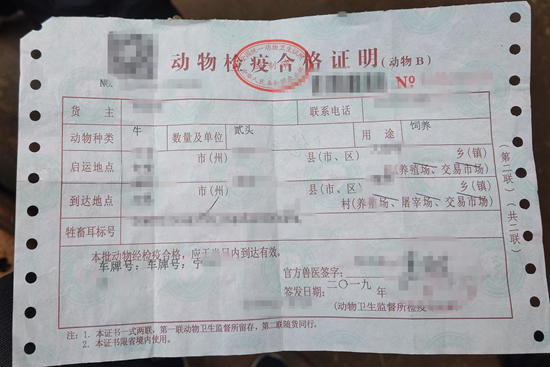 动物检疫合格证明(动物B)
NO. Nº
货 主 联系电话
动物种类 牛 数量及单位 贰头 用 途 饲养
启运地点 市(州) 县(市、区) 乡(镇)
(养殖场、交易市场)
到达地点 市(州) 县(市、区) 乡(镇)
村(养殖场、屠宰场、交易市场)
牲畜耳标号
本批动物经检疫合格,应于 日内到达有效。
车牌号:车牌号:宁
官方兽医签字:
签发日期:二〇一九 年
(动物卫生监督所检疫
注:1. 本证书一式两联,第一联动物卫生监督所留存,第二联随货同行。
2. 本证书限省境内使用。
(第二联)(共二联)